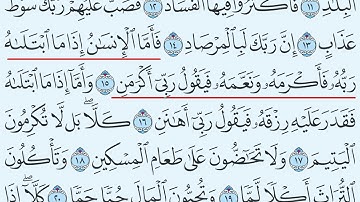 ٱلۡبِلَٰدِ ۝١١ فَأَكۡثَرُواْ فِيهَا ٱلۡفَسَادَ ۝١٢ فَصَبَّ عَلَيۡهِمۡ رَبُّكَ سَوۡطَ
عَذَابٍ ۝١٣ إِنَّ رَبَّكَ لَبِٱلۡمِرۡصَادِ ۝١٤ فَأَمَّا ٱلۡإِنسَٰنُ إِذَا مَا ٱبۡتَلَىٰهُ
رَبُّهُۥ فَأَكۡرَمَهُۥ وَنَعَّمَهُۥ فَيَقُولُ رَبِّيٓ أَكۡرَمَنِ ۝١٥ وَأَمَّآ إِذَا مَا ٱبۡتَلَىٰهُ
فَقَدَرَ عَلَيۡهِ رِزۡقَهُۥ فَيَقُولُ رَبِّيٓ أَهَٰنَنِ ۝١٦ كَلَّاۖ بَل لَّا تُكۡرِمُونَ
ٱلۡيَتِيمَ ۝١٧ وَلَا تَحَٰٓضُّونَ عَلَىٰ طَعَامِ ٱلۡمِسۡكِينِ ۝١٨ وَتَأۡكُلُونَ
ٱلتُّرَاثَ أَكۡلٗا لَّمّٗا ۝١٩ وَتُحِبُّونَ ٱلۡمَالَ حُبّٗا جَمّٗا ۝٢٠ كَلَّآۖ إِذَا